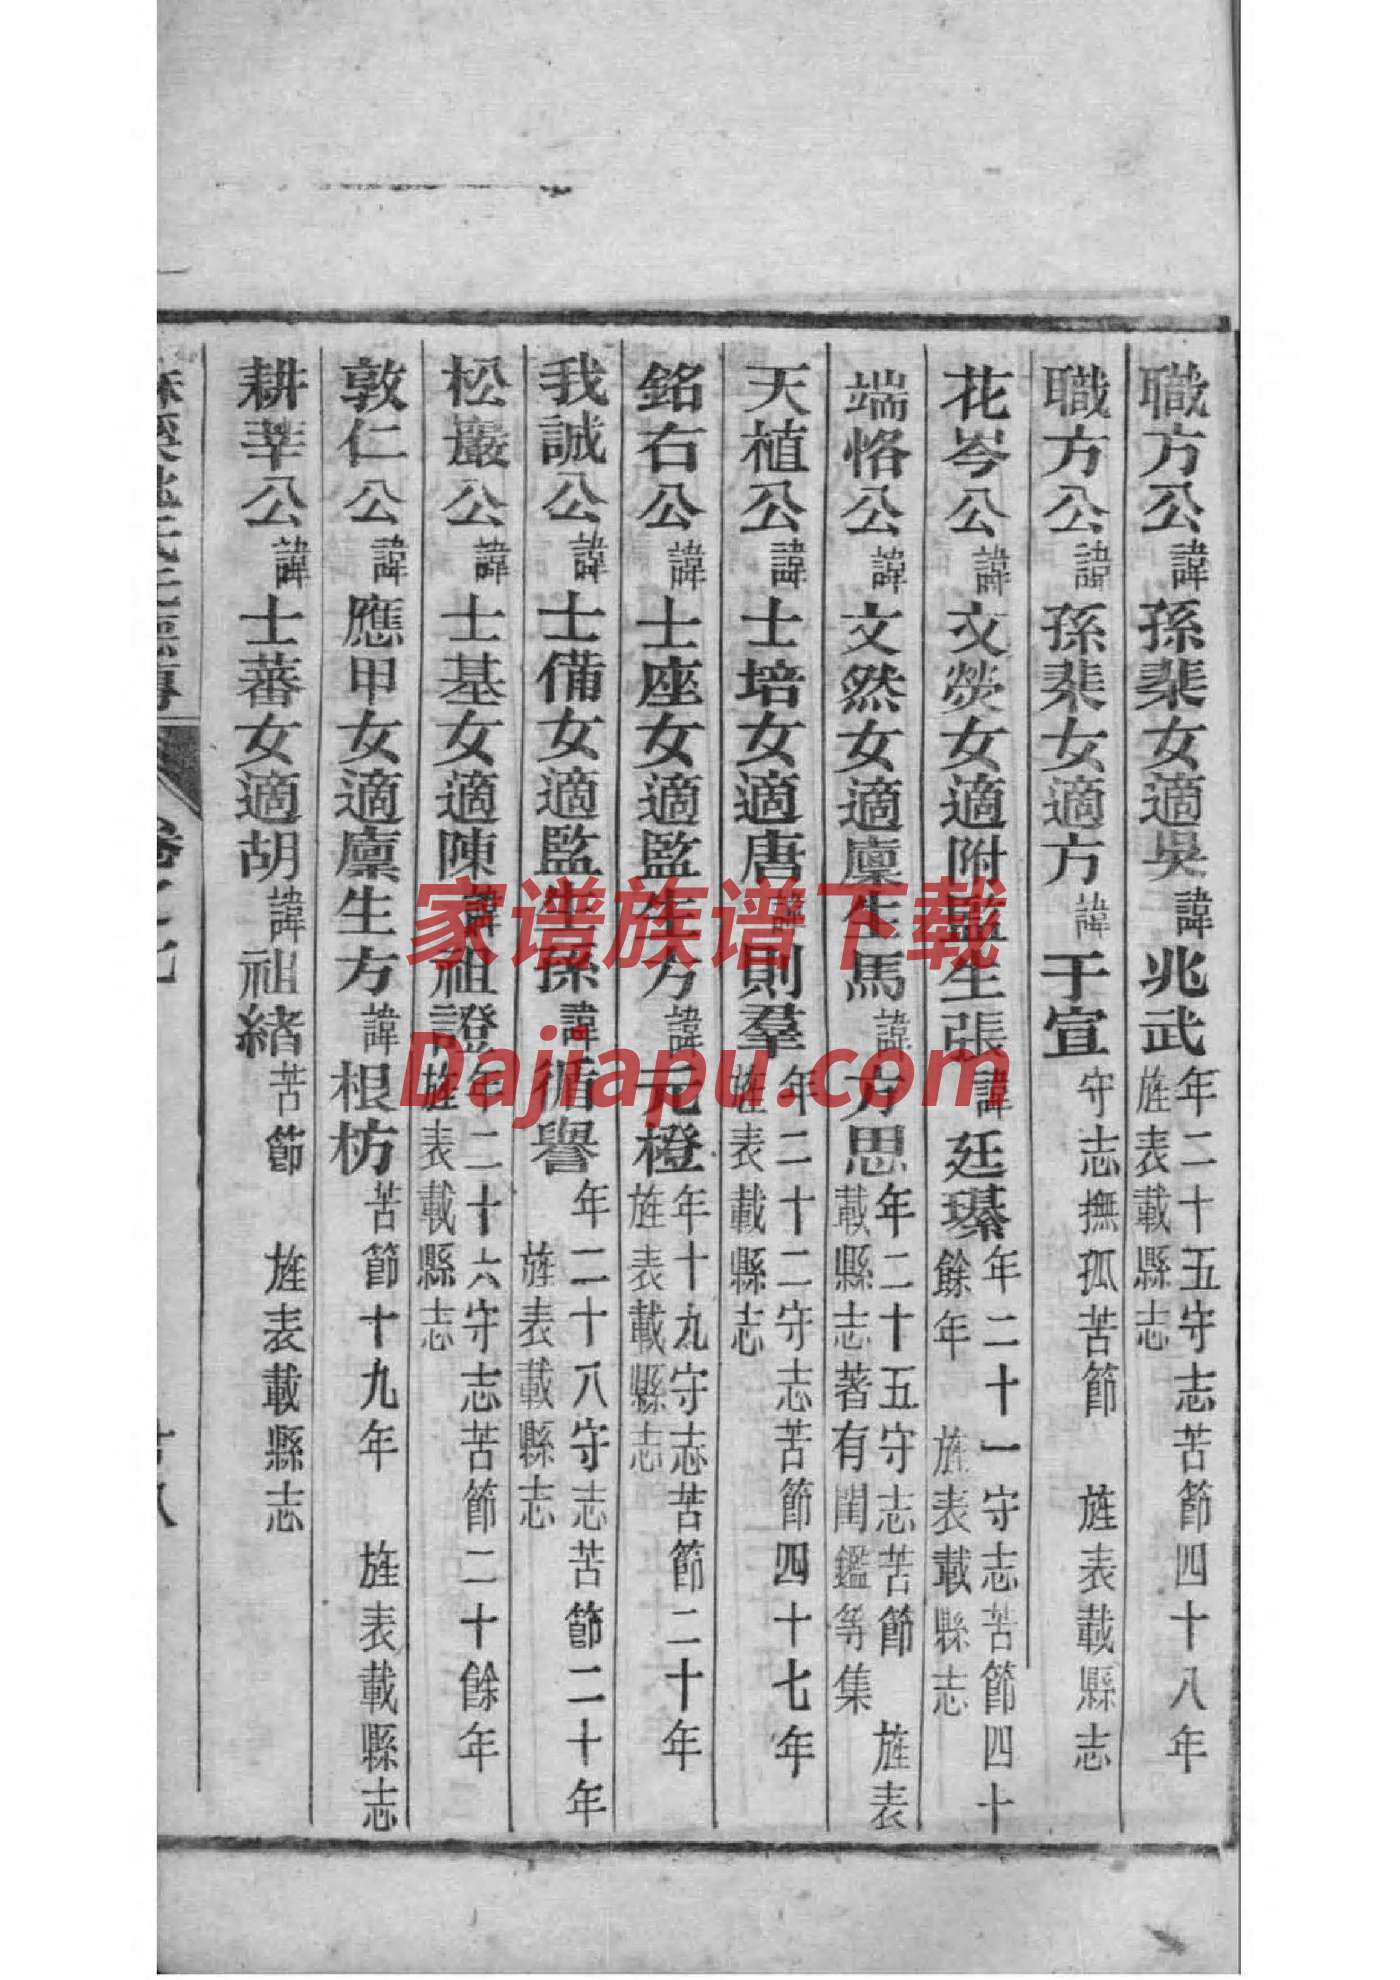 職方公諱孫棐女適吳諱兆武年二十五守志苦節四十八年旌表載縣志
職方公諱孫棐女適方諱于宣守志撫孤苦節 旌表載縣志
花岑公諱文熒女適附監生張諱廷瑧年二十一守志苦節四十餘年 旌表載縣志
端恪公諱文然女適廩生馬諱方思年二十五守志苦節 旌表載縣志著有閨鑑等集
天植公諱士培女適唐諱則羣年二十二守志苦節四十七年旌表載縣志
銘右公諱士座女適監生方諱元橙年十九守志苦節二十年旌表載縣志
我誠公諱士備女適監生孫諱循譽年二十八守志苦節二十年旌表載縣志
松巖公諱士基女適陳諱祖證年二十六守志苦節二十餘年旌表載縣志
敦仁公諱應甲女適廩生方諱根枋苦節十九年 旌表載縣志
耕莘公諱士蕃女適胡諱祖緒苦節 旌表載縣志
家谱族谱下载
Dajiapu.com